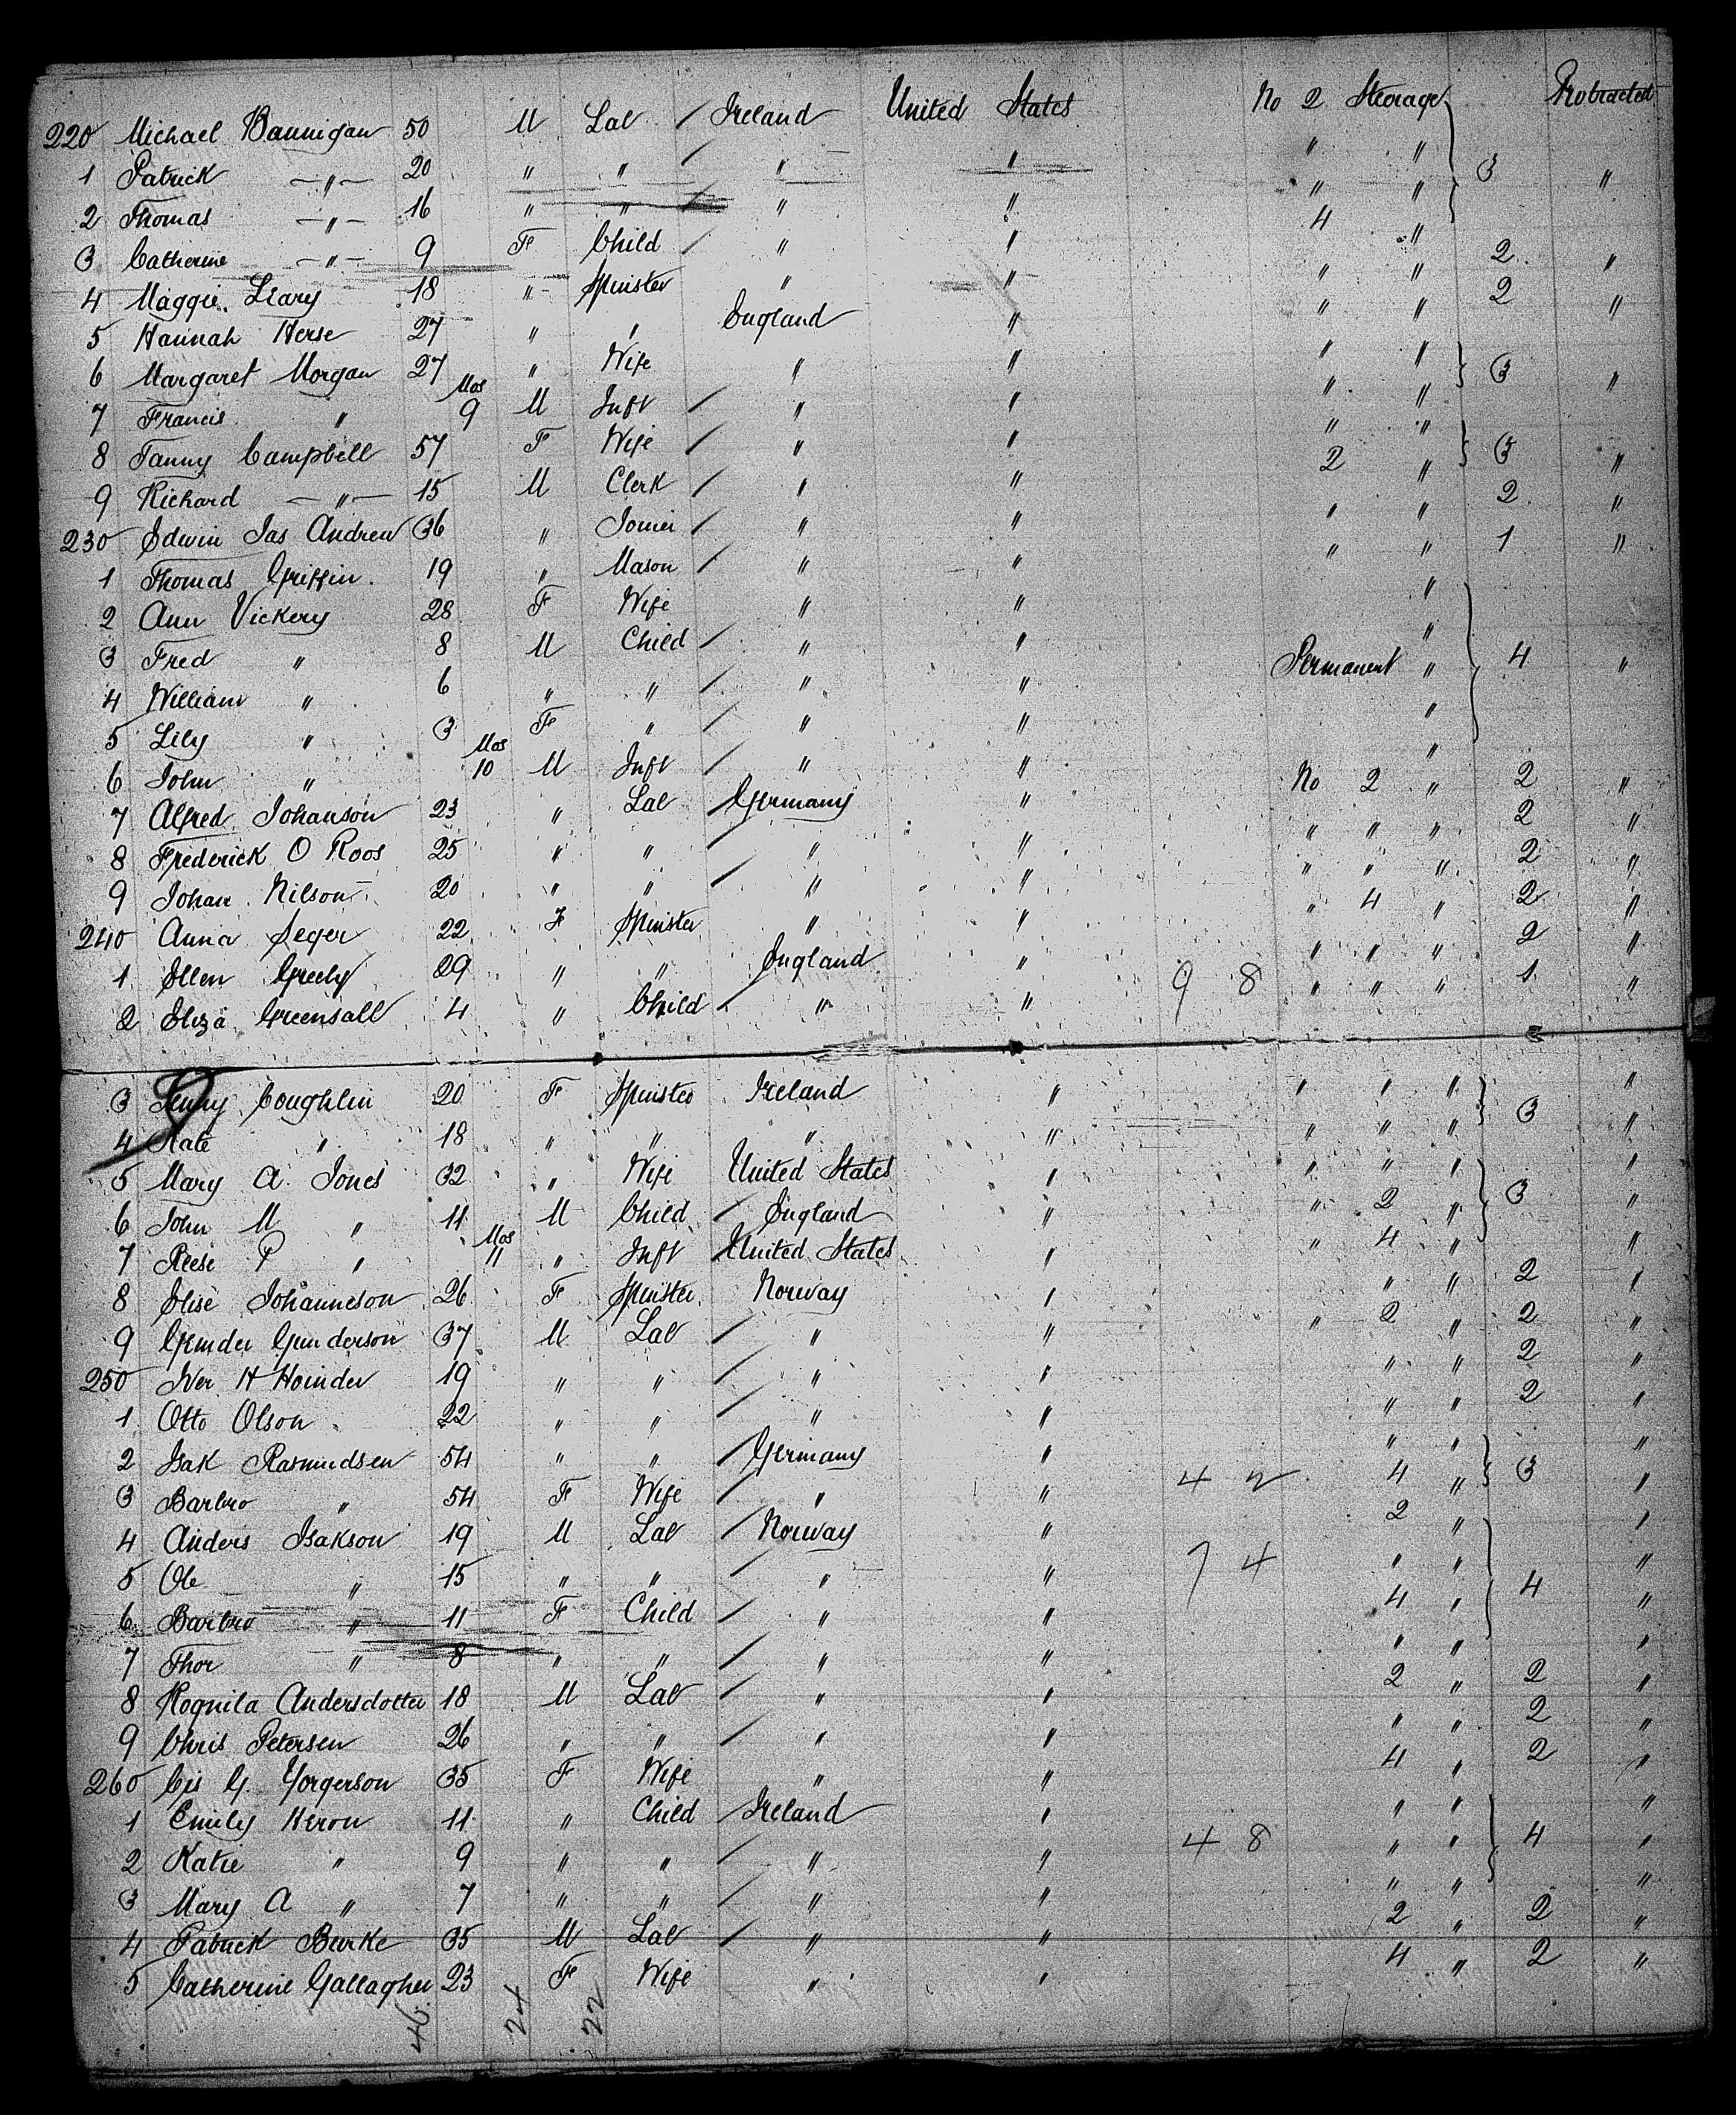 220 Michael Bannigan 50 M Lab / Ireland United States No 2 Steerage Protracted
1 Patrick — " — 20 " " / " " " " 3 "
2 Thomas — " — 16 " " / " " " "
3 Catherine — " — 9 F Child / " " 4 "
4 Maggie Leary 18 " Spinster " " " " 2 "
5 Hannah Herse 27 " " England " " " 2 "
6 Margaret Morgan 27 " Wife " " " " 3 "
7 Francis " Mos 9 M Inft / " " " "
8 Fanny Campbell 57 F Wife / " " " " 3 "
9 Richard — " — 15 M Clerk / " " 2 "
230 Edwin Jas Andrew 36 " Joiner / " " " " 2 "
1 Thomas Griffin 19 " Mason / " " " " 1 "
2 Ann Vickery 28 F Wife " " "
3 Fred " 8 M Child / " " "
4 William " 6 " " / " " Permanent " 4 "
5 Lily " 3 F " / " " "
6 John " Mos 10 M Inft / " " "
7 Alfred Johanson 23 " Lab / Germany " No 2 " 2 "
8 Frederick O Roos 25 " " / " " " " " 2 "
9 Johan Nilson 20 " " / " " " " " 2 "
240 Anna Seger 22 F Spinster " " " 4 " 2 "
1 Ellen Greely 29 " " England " " " " 2 "
2 Eliza Greensall 4 " Child / " " 9 8 " " " 1 "
3 Jenny Coughlin 20 F Spinster Ireland " " " " 3 "
4 Kate " 18 " " " " " " " "
5 Mary A Jones 32 " Wife United States " " " " "
6 John M " 11 M Child / England " " 2 " 3 "
7 Reese P " Mos 11 " Inft / United States " " 4 " "
8 Elise Johanneson 26 F Spinster Norway " " " 2 "
9 Gunder Gunderson 37 M Lab / " " " 2 " 2 "
250 Iver H Hoinder 19 " " / " " " " 2 "
1 Otto Olson 22 " " / " " " " 2 "
2 Isak Rasmudsen 54 " " / Germany " " " "
3 Barbro " 54 F Wife / " " 4 2 4 " 3 "
4 Anders Isakson 19 M Lab / Norway " 2 " "
5 Ole " 15 " " / " " 7 4 " " "
6 Barbro " 11 F Child / " " 4 " 4 "
7 Thor " 8 " " / " " " " "
8 Rognila Andersdotter 18 M Lab / " " 2 " 2 "
9 Chris Petersen 26 " " / " " " " 2 "
260 Cis G. Yorgerson 35 F Wife " " 4 " 2 "
1 Emily Heron 11 " Child / Ireland " " " "
2 Katie " 9 " " / " " 4 8 " " 4 "
3 Mary A " 7 " " / " " " " "
4 Patrick Burke 35 M Lab / " " 2 " 2 "
5 Catherine Gallagher 23 F Wife " " 4 " 2 "
46 24 22